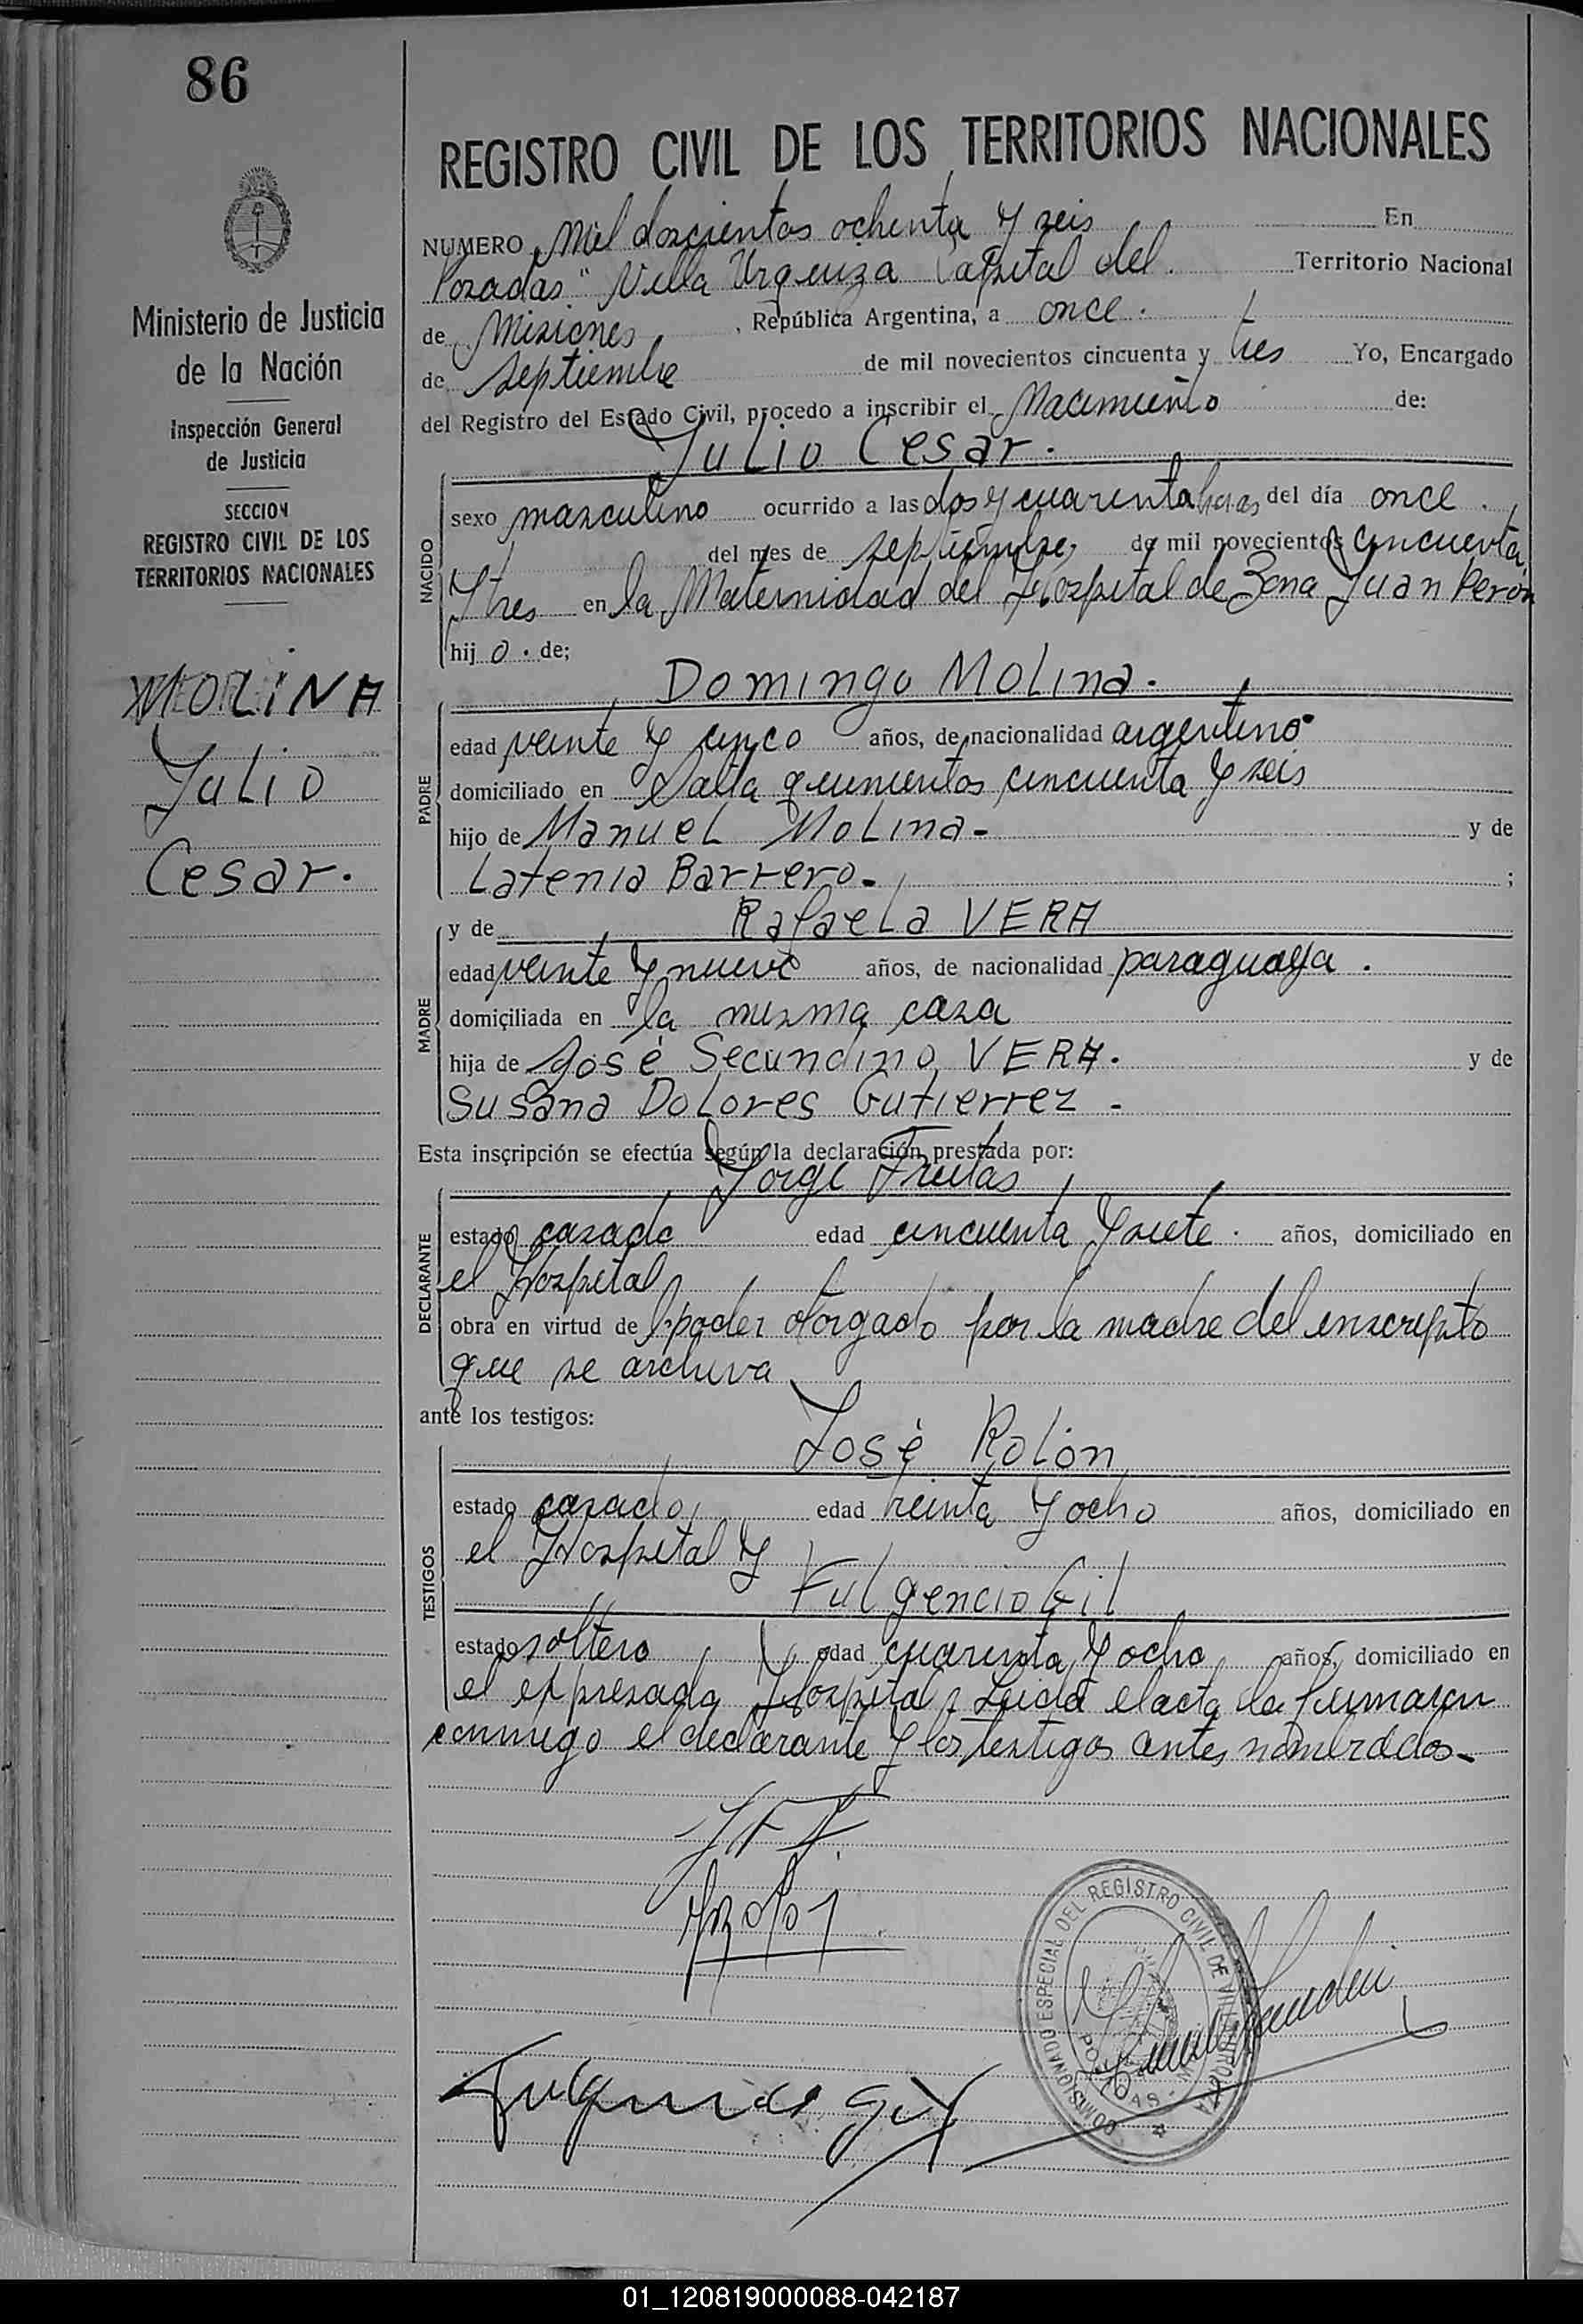 86
Ministerio de Justicia
de la Nación
Inspección General
de Justicia
SECCION
REGISTRO CIVIL DE LOS
TERRITORIOS NACIONALES
MOLINA
Julio
Cesar.
REGISTRO CIVIL DE LOS TERRITORIOS NACIONALES
NUMERO Mil doscientos ochenta y seis En
Posadas "Villa Urquiza Capital del Territorio Nacional
de Misiones, República Argentina, a once.
de septiembre de mil novecientos cincuenta y tres Yo, Encargado
del Registro del Estado Civil, procedo a inscribir el Nacimiento de:
Julio Cesar.
NACIDO
sexo masculino ocurrido a las dos y cuarenta horas del día once.
del mes de septiembre, de mil novecientos cincuenta
y tres en la Maternidad del Hospital de Zona Juan Perón
hijo. de;
Domingo Molina.
PADRE
edad veinte y cinco años, de nacionalidad argentino
domiciliado en Salta quinientos cincuenta y seis
hijo de Manuel Molina- y de
Latenia Barrero- ;
y de Rafaela VERA
MADRE
edad veinte y nueve años, de nacionalidad paraguaya.
domiciliada en la misma casa
hija de José Secundino VERA. y de
Susana Dolores Gutierrez -
Esta inscripción se efectúa según la declaración prestada por:
Jorge Freitas
DECLARANTE
estado casado edad cincuenta y siete. años, domiciliado en
el Hospital
obra en virtud de poder otorgado por la madre del inscripto
que se archiva
ante los testigos:
José Rolón
TESTIGOS
estado casado, edad treinta y ocho años, domiciliado en
el Hospital y
Fulgencio Gil
estado soltero edad cuarenta y ocho años, domiciliado en
el expresado Hospital. Leida el acta la firmaron
conmigo el declarante y los testigos antes nombrados-
COMISIONADO ESPECIAL DEL REGISTRO CIVIL DE VILLA URQUIZA
POSADAS
Fulgencio Gil
01_120819000088-042187